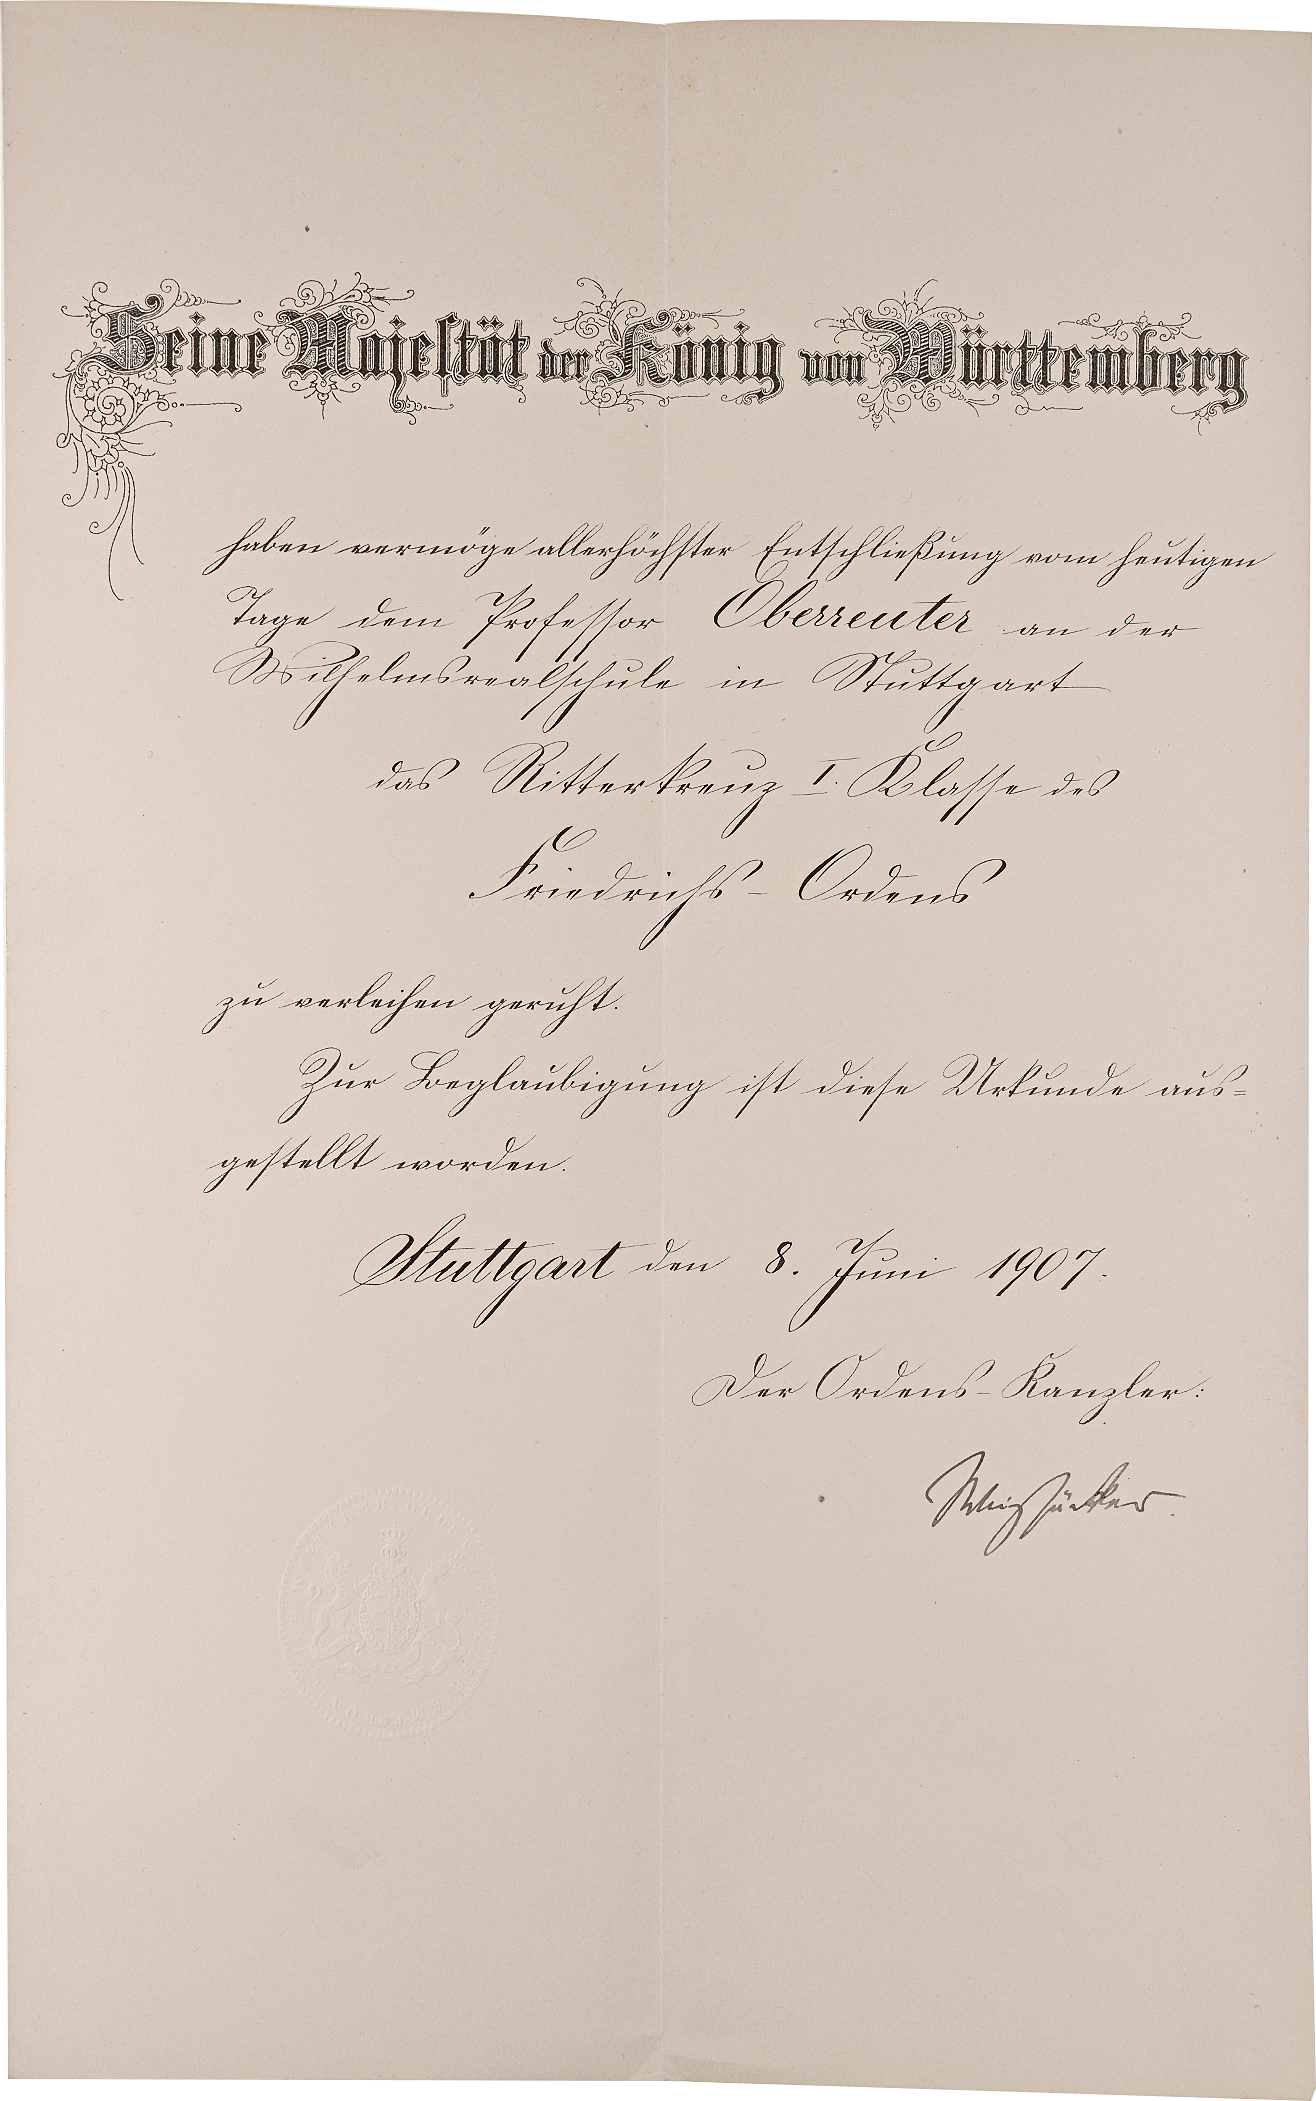 Seine Majestät der König von Württemberg
haben vermöge allerhöchster Entschließung vom heutigen
Tage dem Professor Oberreuter an der
Wilhelmsrealschule in Stuttgart
das Ritterkreuz I. Klasse des
Friedrichs-Ordens
zu verleihen geruht.
Zur Beglaubigung ist diese Urkunde aus=
gestellt worden.
Stuttgart den 8. Juni 1907.
Der Ordens-Kanzler:
Weizsäcker.